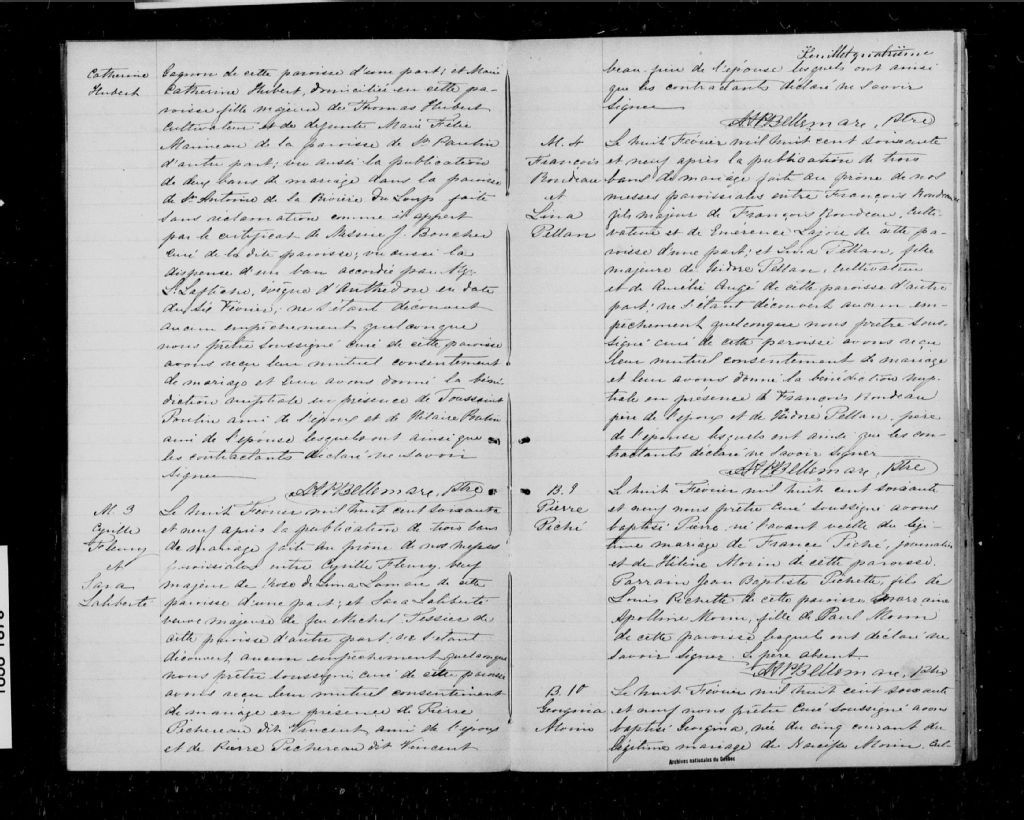 Catherine
Hubert
Gagnon de cette paroisse d'une part; et Marie
Catherine Hubert, domiciliée en cette pa-
roisse, fille majeure de Thomas Hubert
cultivateur et de defunte Marie
de la paroisse de St Paulin
d'autre part; vu aussi la publication
de deux bans de mariage dans la paroisse
de St Antoine de la Rivière du Loup faite
sans réclamation comme il appert
par le certificat de Messire J. Boucher
curé de la dite paroisse; vu aussi la
dispense d'un ban accordée par Mgr
L. Lafleche, évêque d'Anthedon en date
du six Février; ne s'étant découvert
aucun empêchement quelconque
nous prêtre soussigné curé de cette paroisse
avons reçu leur mutuel consentement
de mariage et leur avons donné la béné-
diction nuptiale en présence de Toussaint
Poulin ami de l'époux et de Hilaire Poulin
ami de l'épouse lesquels ont ainsi que
les contractants déclaré ne savoir
signer
Bellemare, Ptre
M. 3
Cyrille
Fleury
et
Sara
Laliberté
Le huit Février mil huit cent soixante
et neuf après la publication de trois bans
de mariage faite au prône de nos messes
paroissiales entre Cyrille Fleury, veuf
majeur de Rose de Lima Lamair de cette
paroisse d'une part; et Sara Laliberté
veuve majeure de feu Michel Tessier de
cette paroisse d'autre part, ne s'étant
découvert aucun empêchement quelconque
nous prêtre soussigné curé de cette paroisse
avons reçu leur mutuel consentement
de mariage en présence de Pierre
Pichereau dit Vincent ami de l'époux
et de Pierre Pichereau dit Vincent
Feuillet quatrième
beau-père de l'épouse lesquels ont ainsi
que les contractants déclaré ne savoir
signer
Bellemare, Ptre
M. 4
François
Bondeau
et
Lina
Pellan
Le huit Février mil huit cent soixante
et neuf après la publication de trois
bans de mariage faite au prône de nos
messes paroissiales entre François Bondeau
fils majeur de François Bondeau, culti-
vateur et de Emerence Lajoie de cette pa-
roisse d'une part; et Lina Pellan, fille
majeure de Isidore Pellan, cultivateur
et de Amélie Augé de cette paroisse d'autre
part; ne s'étant découvert aucun em-
pêchement quelconque nous prêtre sous-
signé curé de cette paroisse avons reçu
leur mutuel consentement de mariage
et leur avons donné la bénédiction nup-
tiale en présence de François Bondeau
père de l'époux et de Isidore Pellan, père
de l'épouse lesquels ont ainsi que les con-
tractants déclaré ne savoir signer
Bellemare, Ptre
B. 9
Pierre
Piché
Le huit Février mil huit cent soixante
et neuf nous prêtre curé soussigné avons
baptisé Pierre, né l'avant veille du légi-
time mariage de France Piché, journalier
et de Hélène Morin de cette paroisse.
Parrain Jean Baptiste Pichette, fils de
Louis Pichette de cette paroisse marraine
Apolline Morin, fille de Paul Morin
de cette paroisse lesquels ont déclaré ne
savoir signer. Le père absent
Bellemare, Ptre
B. 10
Georgina
Morin
Le huit Février mil huit cent soixante
et neuf nous prêtre Curé soussigné avons
baptisé Georgina, née du cinq courant du
légitime mariage de Narcisse Morin, cul-
Archives nationales du Québec